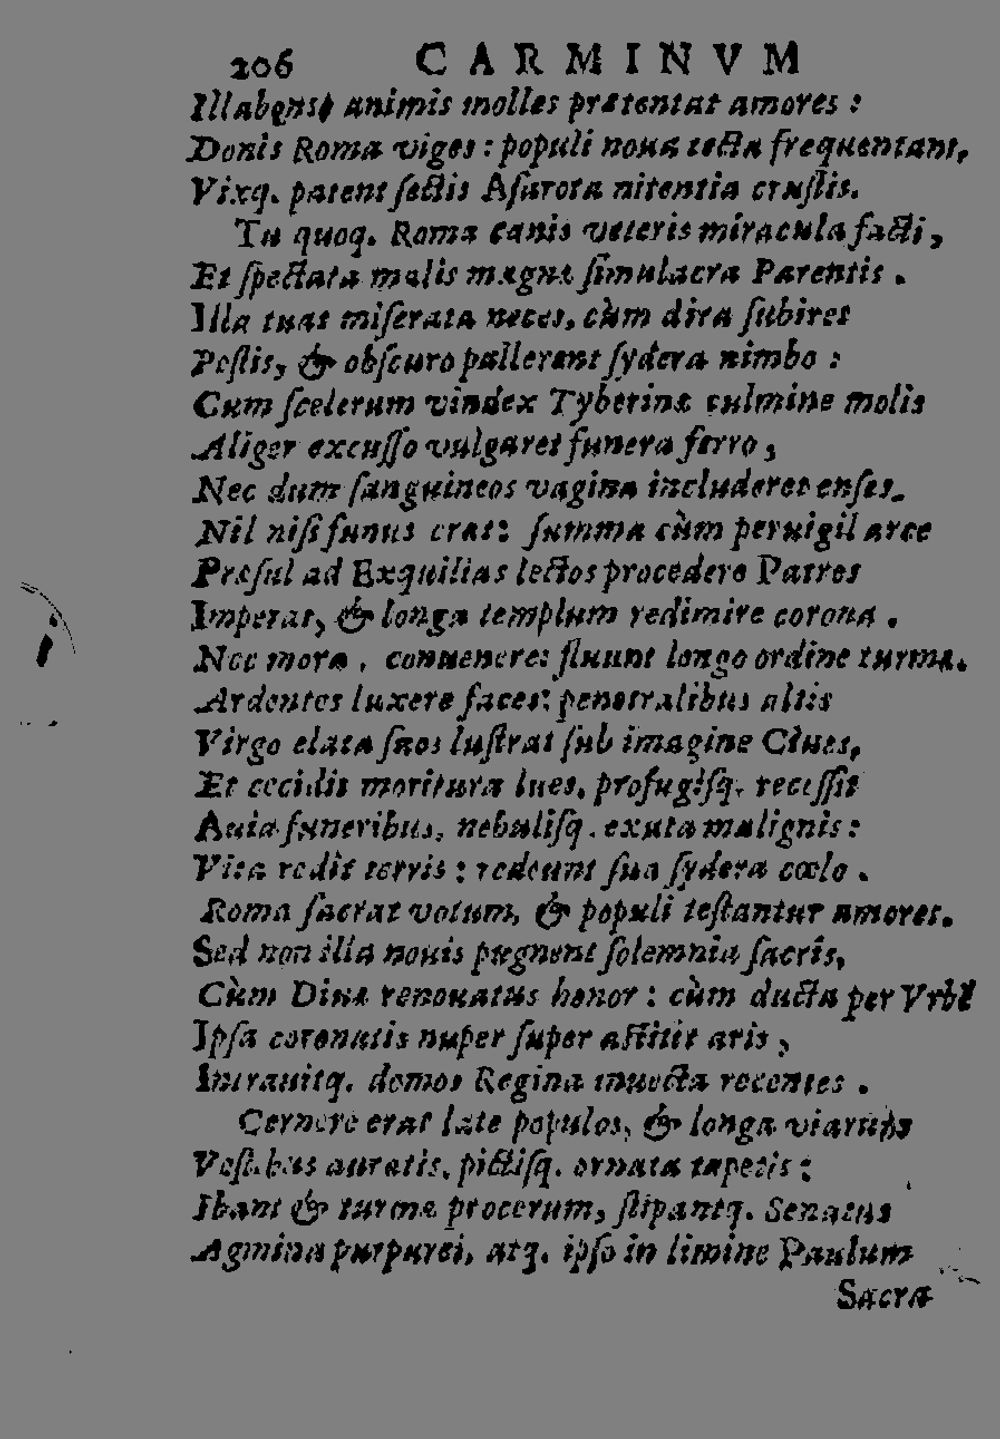 206 CARMINVM
Illabensq; animis molles prætentat amores :
Donis Roma viges : populi noua tecta frequentant,
Vixq. patent sectis Asarota nitentia crustis.
Tu quoq. Roma canis veteris miracula facti,
Et spectata malis magnæ simulacra Parentis .
Illa tuas miserata neces, cùm dira subiret
Pestis, & obscuro pallerent sydera nimbo :
Cum scelerum vindex Tyberinæ culmine molis
Aliger excusso vulgaret funera ferro,
Nec dum sanguineos vagina includeret enses.
Nil nisi funus erat: summa cùm peruigil arce
Præsul ad Exquilias lectos procedere Patres
Imperat, & longa templum redimire corona .
Nec mora , conuenere: fluunt longo ordine turmæ.
Ardentes luxere faces: penetralibus altis
Virgo elata suos lustrat sub imagine Ciues,
Et cecidit moritura lues, profugisq. recessit
Auia funeribus, nebulisq. exuta malignis :
Vita redit terris : redeunt sua sydera cœlo .
Roma sacrat votum, & populi testantur amores.
Sed non illa nouis pugnent solemnia sacris,
Cùm Diuæ renouatus honor : cùm ducta per Vrbẽ
Ipsa coronatis nuper super astitit aris ,
Intrauitq. domos Regina inuecta recentes .
Cernere erat late populos, & longa viarum
Vestibus auratis, pictisq. ornata tapetis :
Ibant & turmæ procerum, stipantq. Senatus
Agmina purpurei, atq. ipso in limine Paulum
Sacra